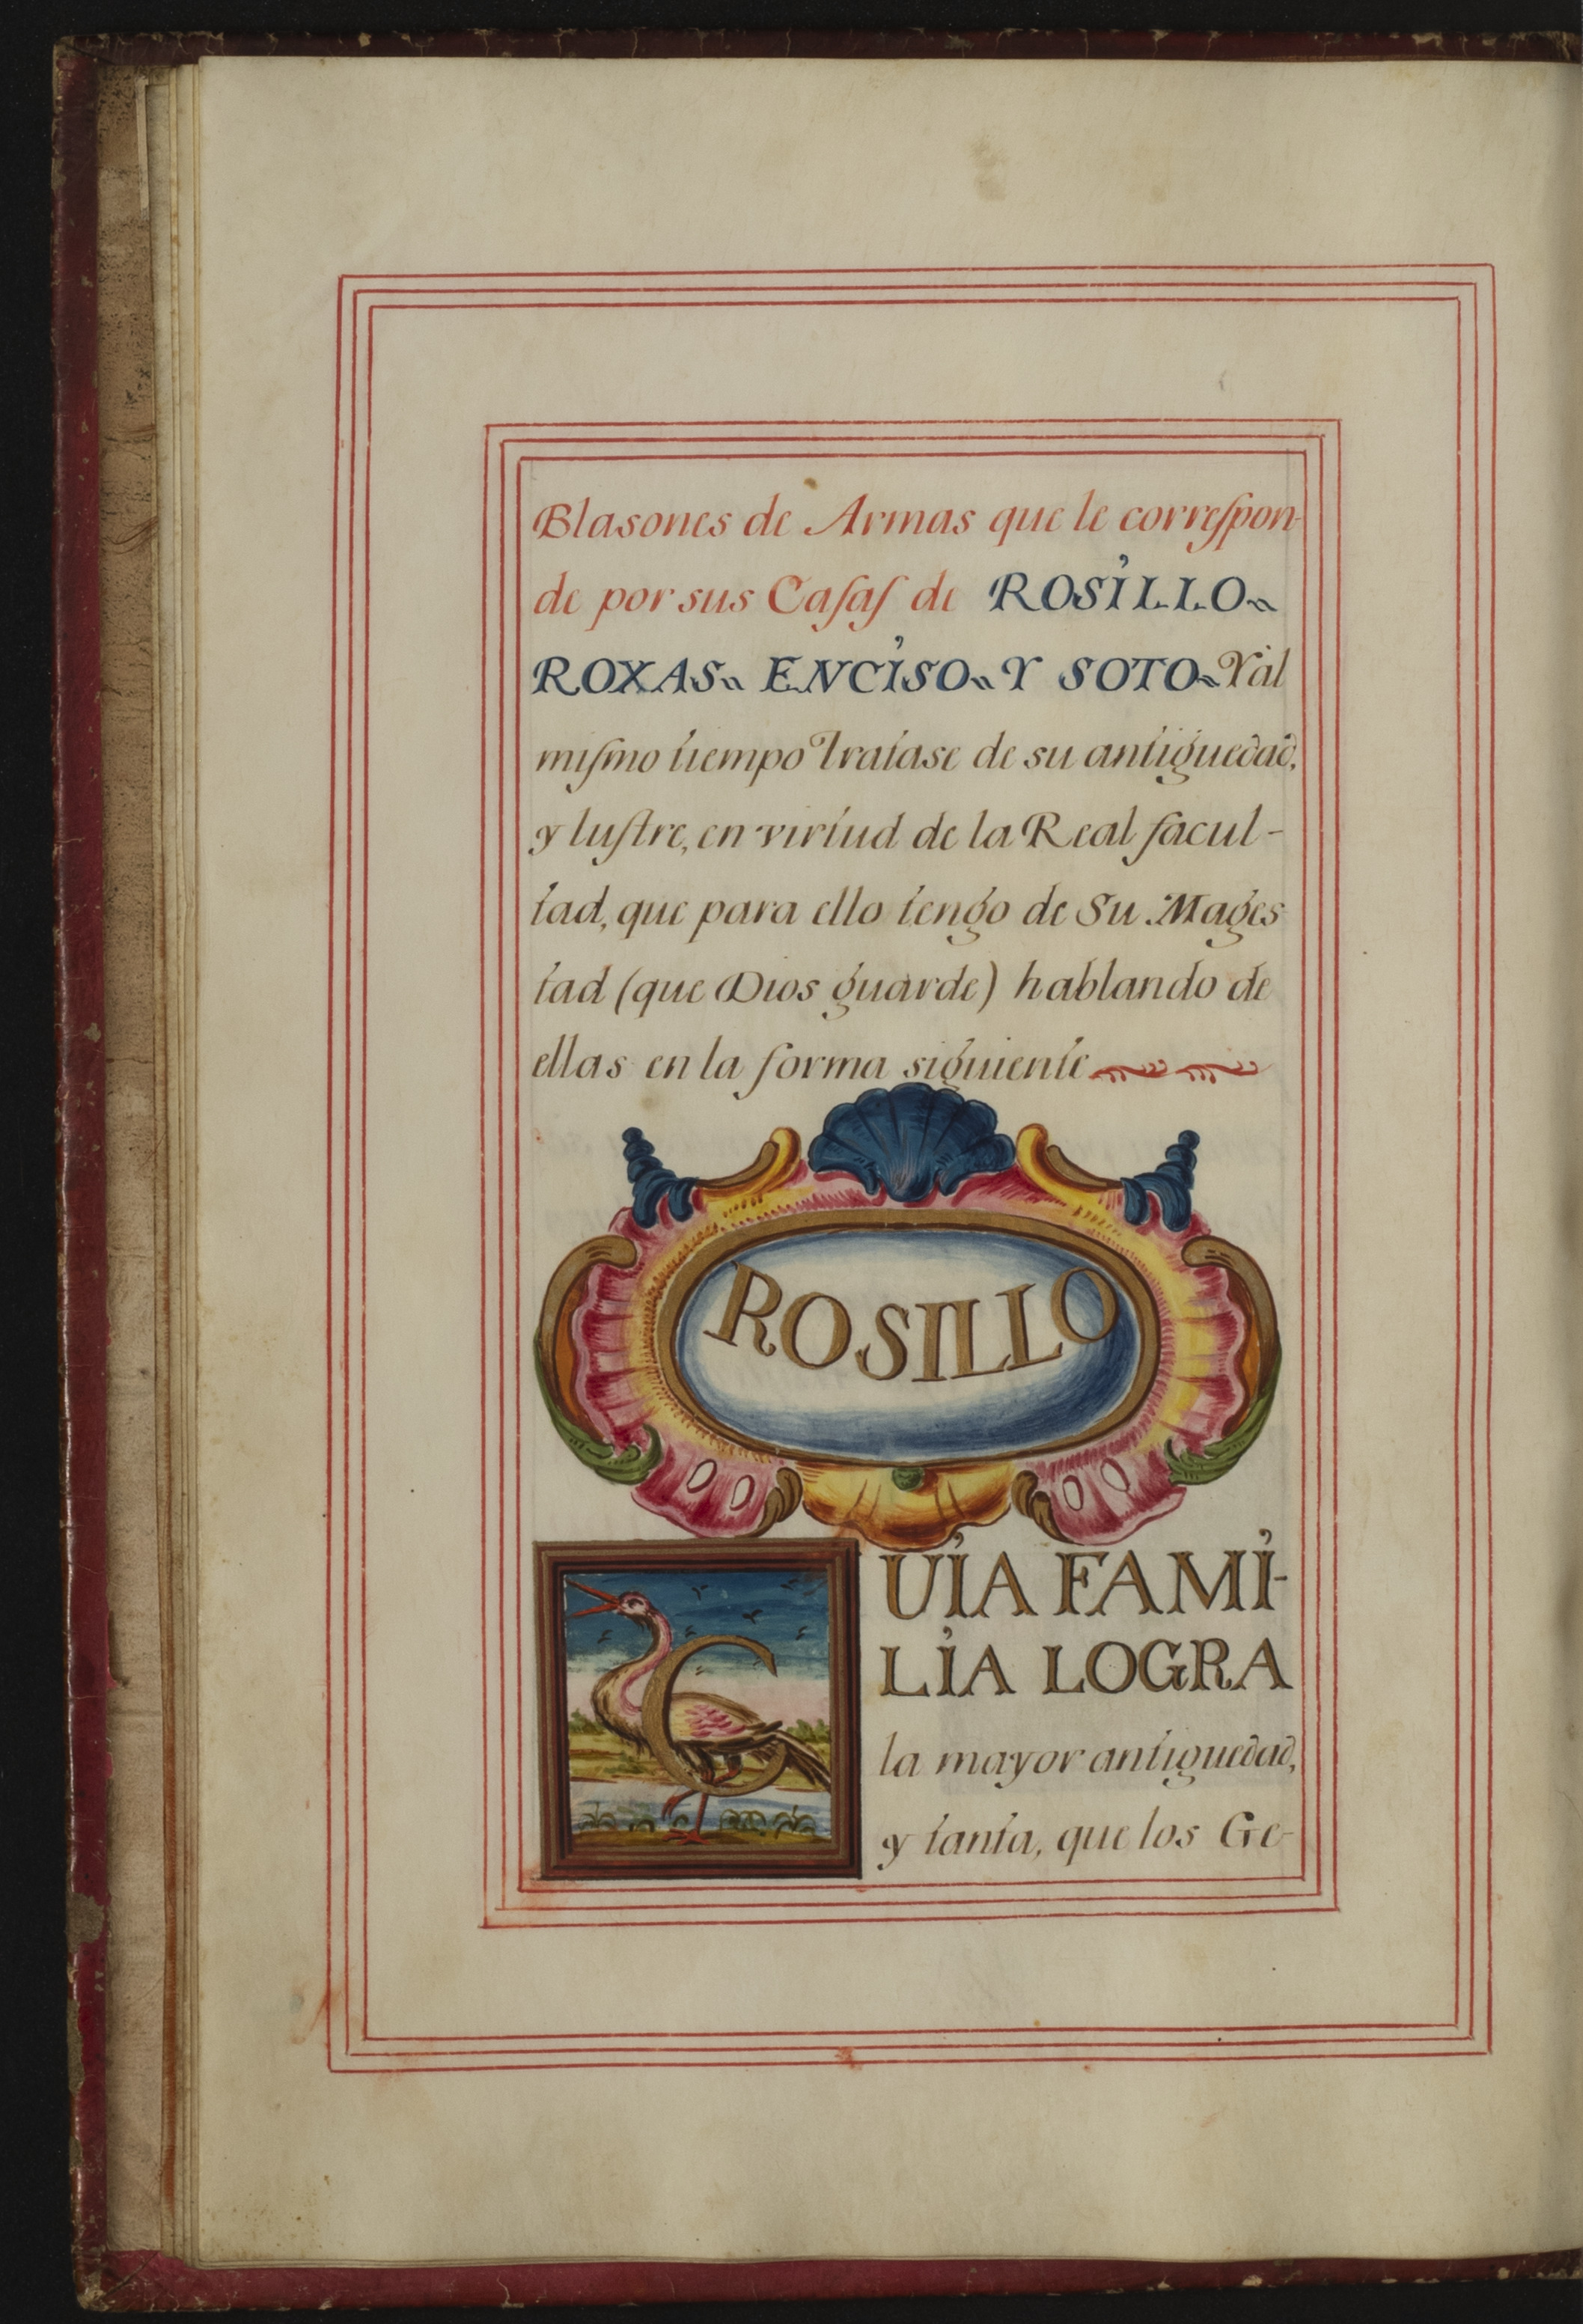 Blasones de Armas que le correſpon-
de por sus Caſaſ de ROSILLO
ROXAS ENCISO Y SOTO Y àl
miſmo tiempo Tratase de su antiguedad,
y luſtre, en virtud de la Real facul-
tad, que para ello tengo de Su Mages
tad (que Dios guarde) hablando de
ellas en la forma siguiente
ROSILLO
C UIA FAMI-
LIA LOGRA
la mayor antiguedad,
y tanta, que los Ge-